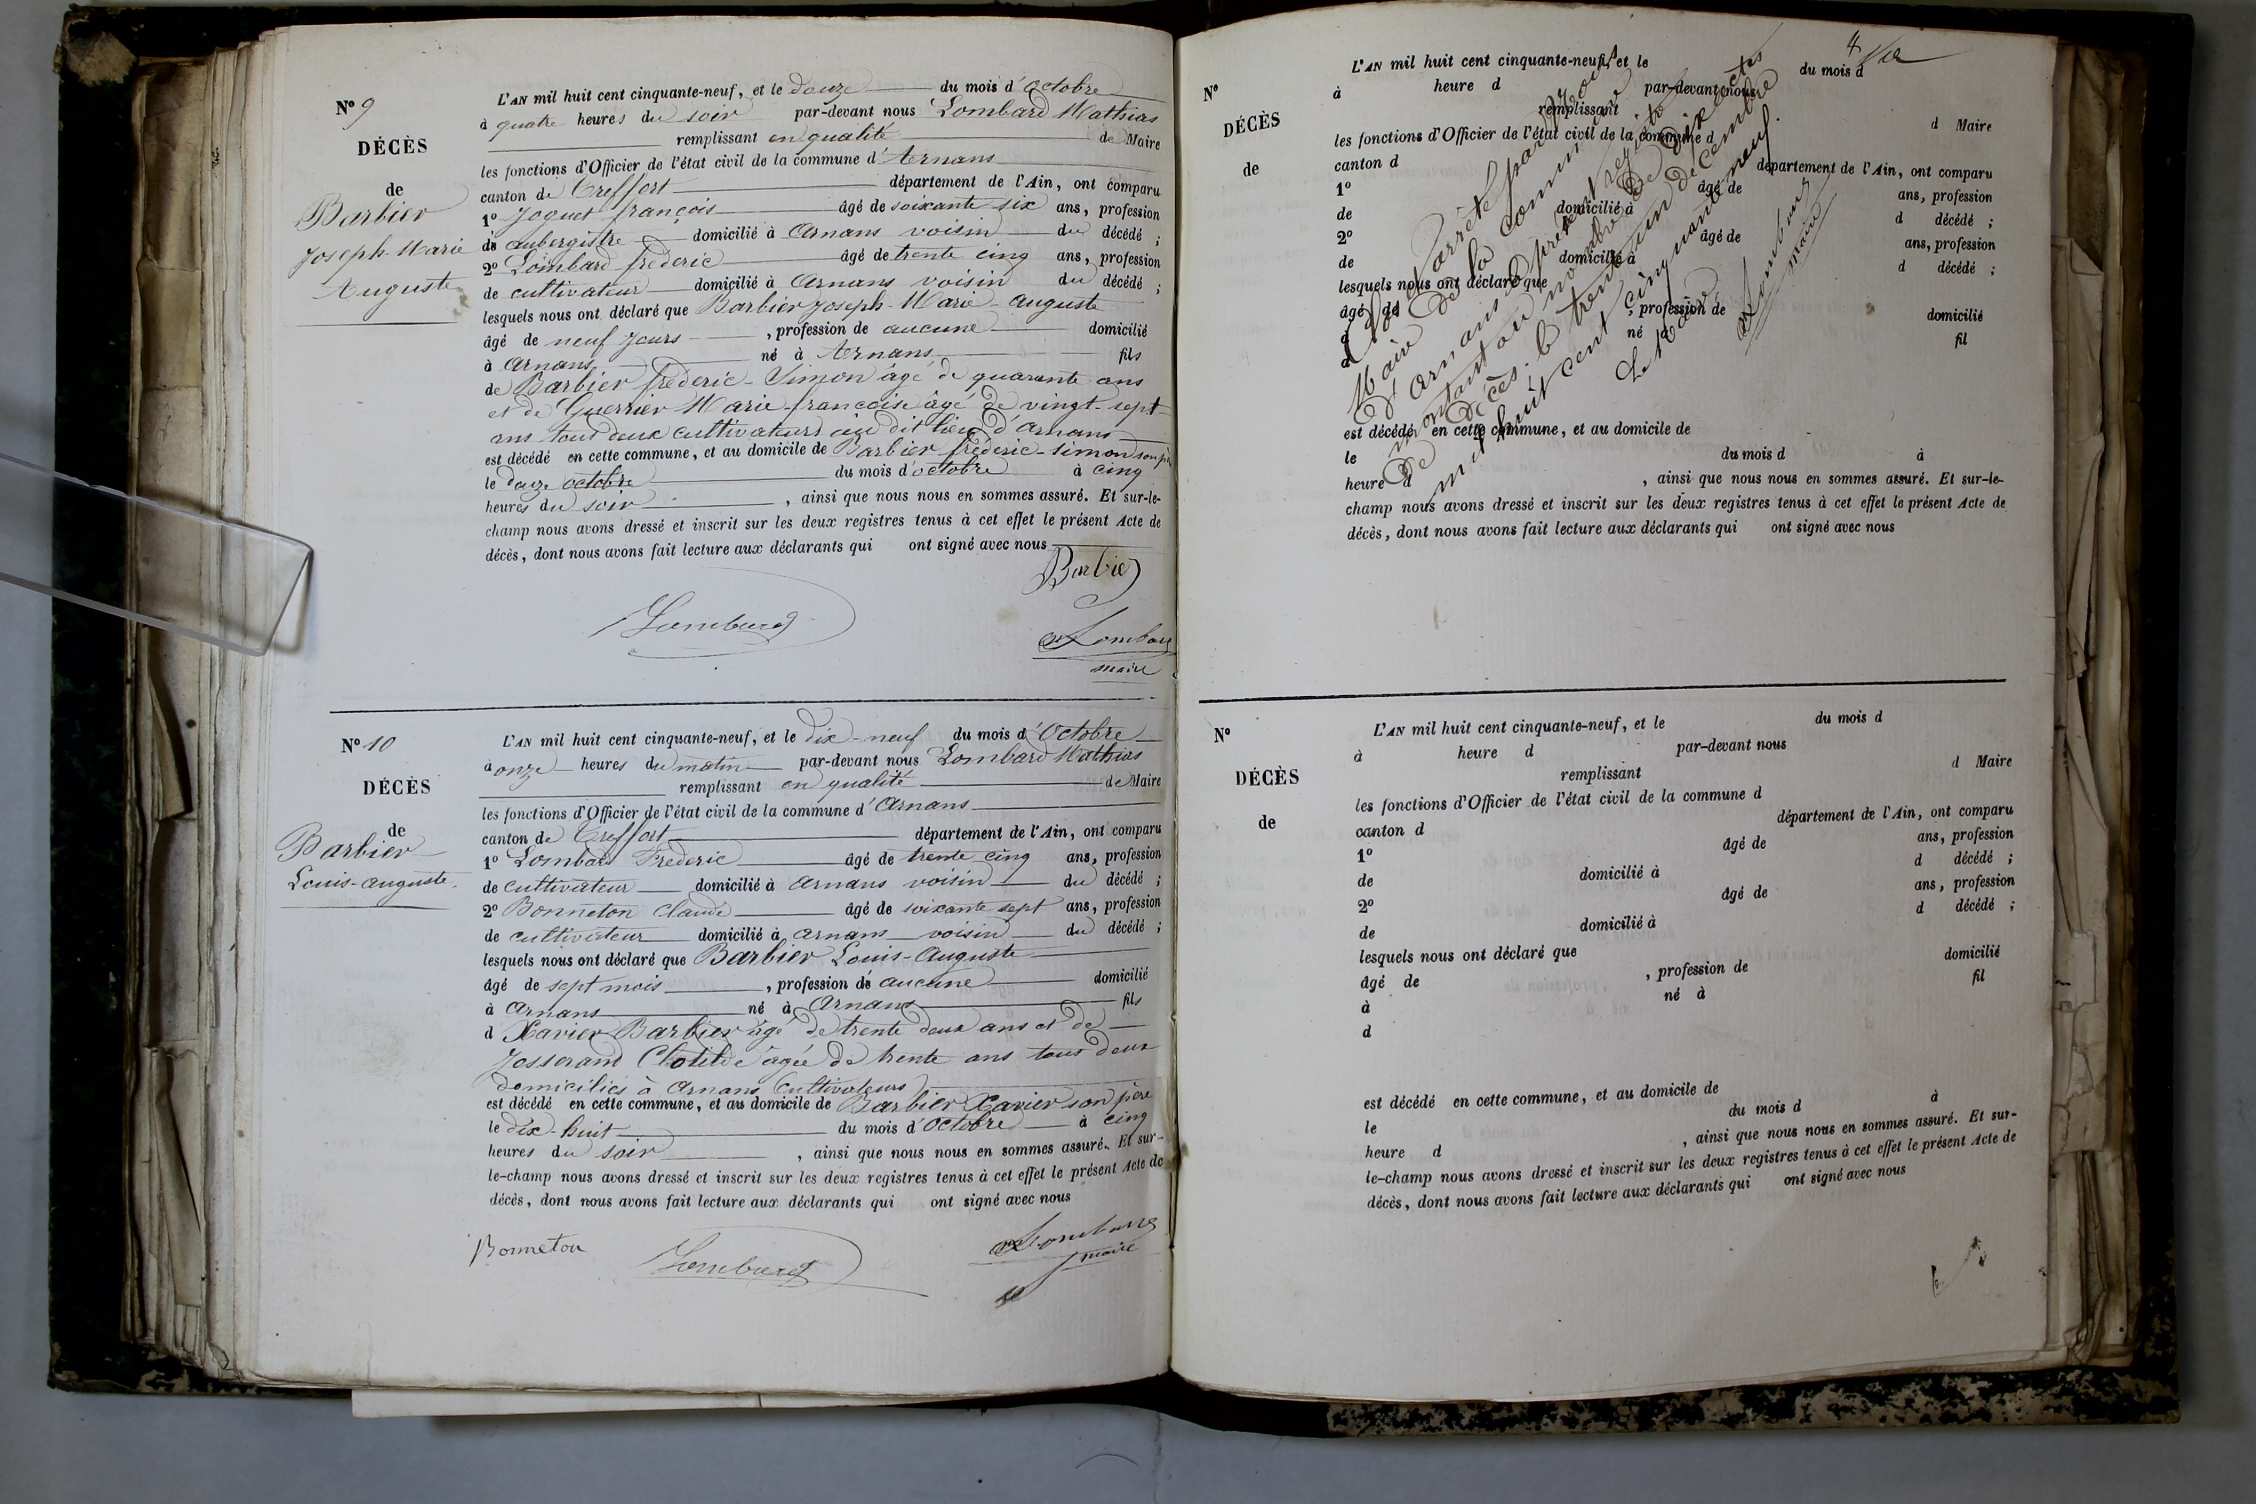 N° 9
DÉCÈS
de
Barbier
Joseph-Marie
Auguste
L'AN mil huit cent cinquante-neuf, et le douze du mois d'Octobre
à quatre heures du soir par-devant nous Lombard Mathias
remplissant en qualité de Maire
les fonctions d'Officier de l'état civil de la commune d'Arnans
canton de Treffort département de l'Ain, ont comparu
1° Joguet françois âgé de soixante six ans, profession
de aubergistre domicilié à Arnans voisin du décédé ;
2° Lombard frederic âgé de trente cinq ans, profession
de cultivateur domicilié à Arnans voisin du décédé ;
lesquels nous ont déclaré que Barbier Joseph-Marie-Auguste
âgé de neuf jours , profession de aucune domicilié
à Arnans né à Arnans fils
de Barbier frederic-Simon âgé de quarante ans
et de Guerrier Marie-françoise âgé de vingt-sept
ans tous deux cultivateurs au dit lieu d'Arnans
est décédé en cette commune, et au domicile de Barbier frédéric-simon son père
le douze octobre du mois d'octobre à cinq
heures du soir , ainsi que nous nous en sommes assuré. Et sur-le-
champ nous avons dressé et inscrit sur les deux registres tenus à cet effet le présent Acte de
décès, dont nous avons fait lecture aux déclarants qui ont signé avec nous
Barbier
Lombard
Lombard
maire
N° 10
DÉCÈS
de
Barbier
Louis-auguste.
L'AN mil huit cent cinquante-neuf, et le dix-neuf du mois d'Octobre
à onze heures du matin par-devant nous Lombard Mathias
remplissant en qualité de Maire
les fonctions d'Officier de l'état civil de la commune d'Arnans
canton de Treffort département de l'Ain, ont comparu
1° Lombard Frederic âgé de trente cinq ans, profession
de cultivateur domicilié à Arnans voisin du décédé ;
2° Bonneton Claude âgé de soixante sept ans, profession
de cultivateur domicilié à Arnans voisin du décédé ;
lesquels nous ont déclaré que Barbier Louis-Auguste
âgé de sept mois , profession de aucune domicilié
à Arnans né à Arnans fils
d Xavier Barbier âgé de trente deux ans et de
Josserand Clotilde âgée de trente ans tous deux
domiciliés à Arnans Cultivateurs
est décédé en cette commune, et au domicile de Barbier Xavier son père
le dix-huit du mois d'Octobre à cinq
heures du soir , ainsi que nous nous en sommes assuré. Et sur-
le-champ nous avons dressé et inscrit sur les deux registres tenus à cet effet le présent Acte de
décès, dont nous avons fait lecture aux déclarants qui ont signé avec nous
Bonneton
Lombard
Lombard
maire
4
N°
DÉCÈS
de
L'AN mil huit cent cinquante-neuf, et le du mois d
à heure d par-devant nous
remplissant d Maire
les fonctions d'Officier de l'état civil de la commune d
canton d département de l'Ain, ont comparu
1° âgé de ans, profession
de domicilié à d décédé ;
2° âgé de ans, profession
de domicilié à d décédé ;
lesquels nous ont déclaré que
âgé de , profession de domicilié
à né à fil
d
est décédé en cette commune, et au domicile de
le du mois d à
heure d , ainsi que nous nous en sommes assuré. Et sur-le-
champ nous avons dressé et inscrit sur les deux registres tenus à cet effet le présent Acte de
décès, dont nous avons fait lecture aux déclarants qui ont signé avec nous
arrêté par nous
Maire de la commune
d'Arnans le présent registre
montant au nombre de dix actes
de décès. le trente un décembre
mil huit cent cinquante neuf.
Le Maire
Lombard
maire
N°
DÉCÈS
de
L'AN mil huit cent cinquante-neuf, et le du mois d
à heure d par-devant nous
remplissant d Maire
les fonctions d'Officier de l'état civil de la commune d
canton d département de l'Ain, ont comparu
1° âgé de ans, profession
de domicilié à d décédé ;
2° âgé de ans, profession
de domicilié à d décédé ;
lesquels nous ont déclaré que
âgé de , profession de domicilié
à né à fil
d
est décédé en cette commune, et au domicile de
le du mois d à
heure d , ainsi que nous nous en sommes assuré. Et sur-
le-champ nous avons dressé et inscrit sur les deux registres tenus à cet effet le présent Acte de
décès, dont nous avons fait lecture aux déclarants qui ont signé avec nous